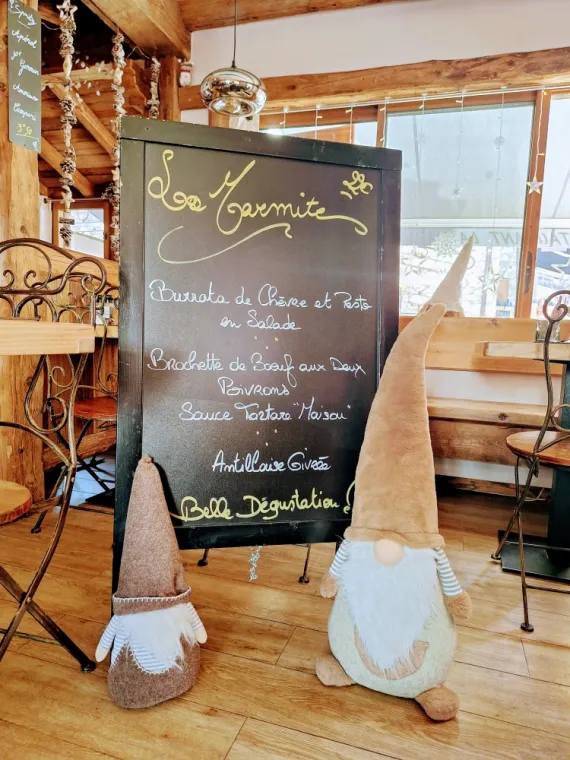 La Marmite
Burrata de Chèvre et Pesto
en Salade
Brochette de Boeuf aux Deux
Poivrons
Sauce Tartare "Maison"
Antillaise Givrée
Belle Dégustation !
Apérol
3€50